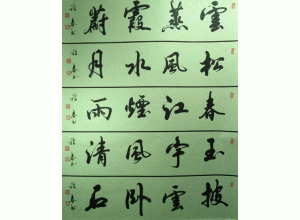 雲蒸霞蔚
松風水月
春江煙雨
玉宇風清
披雲卧石